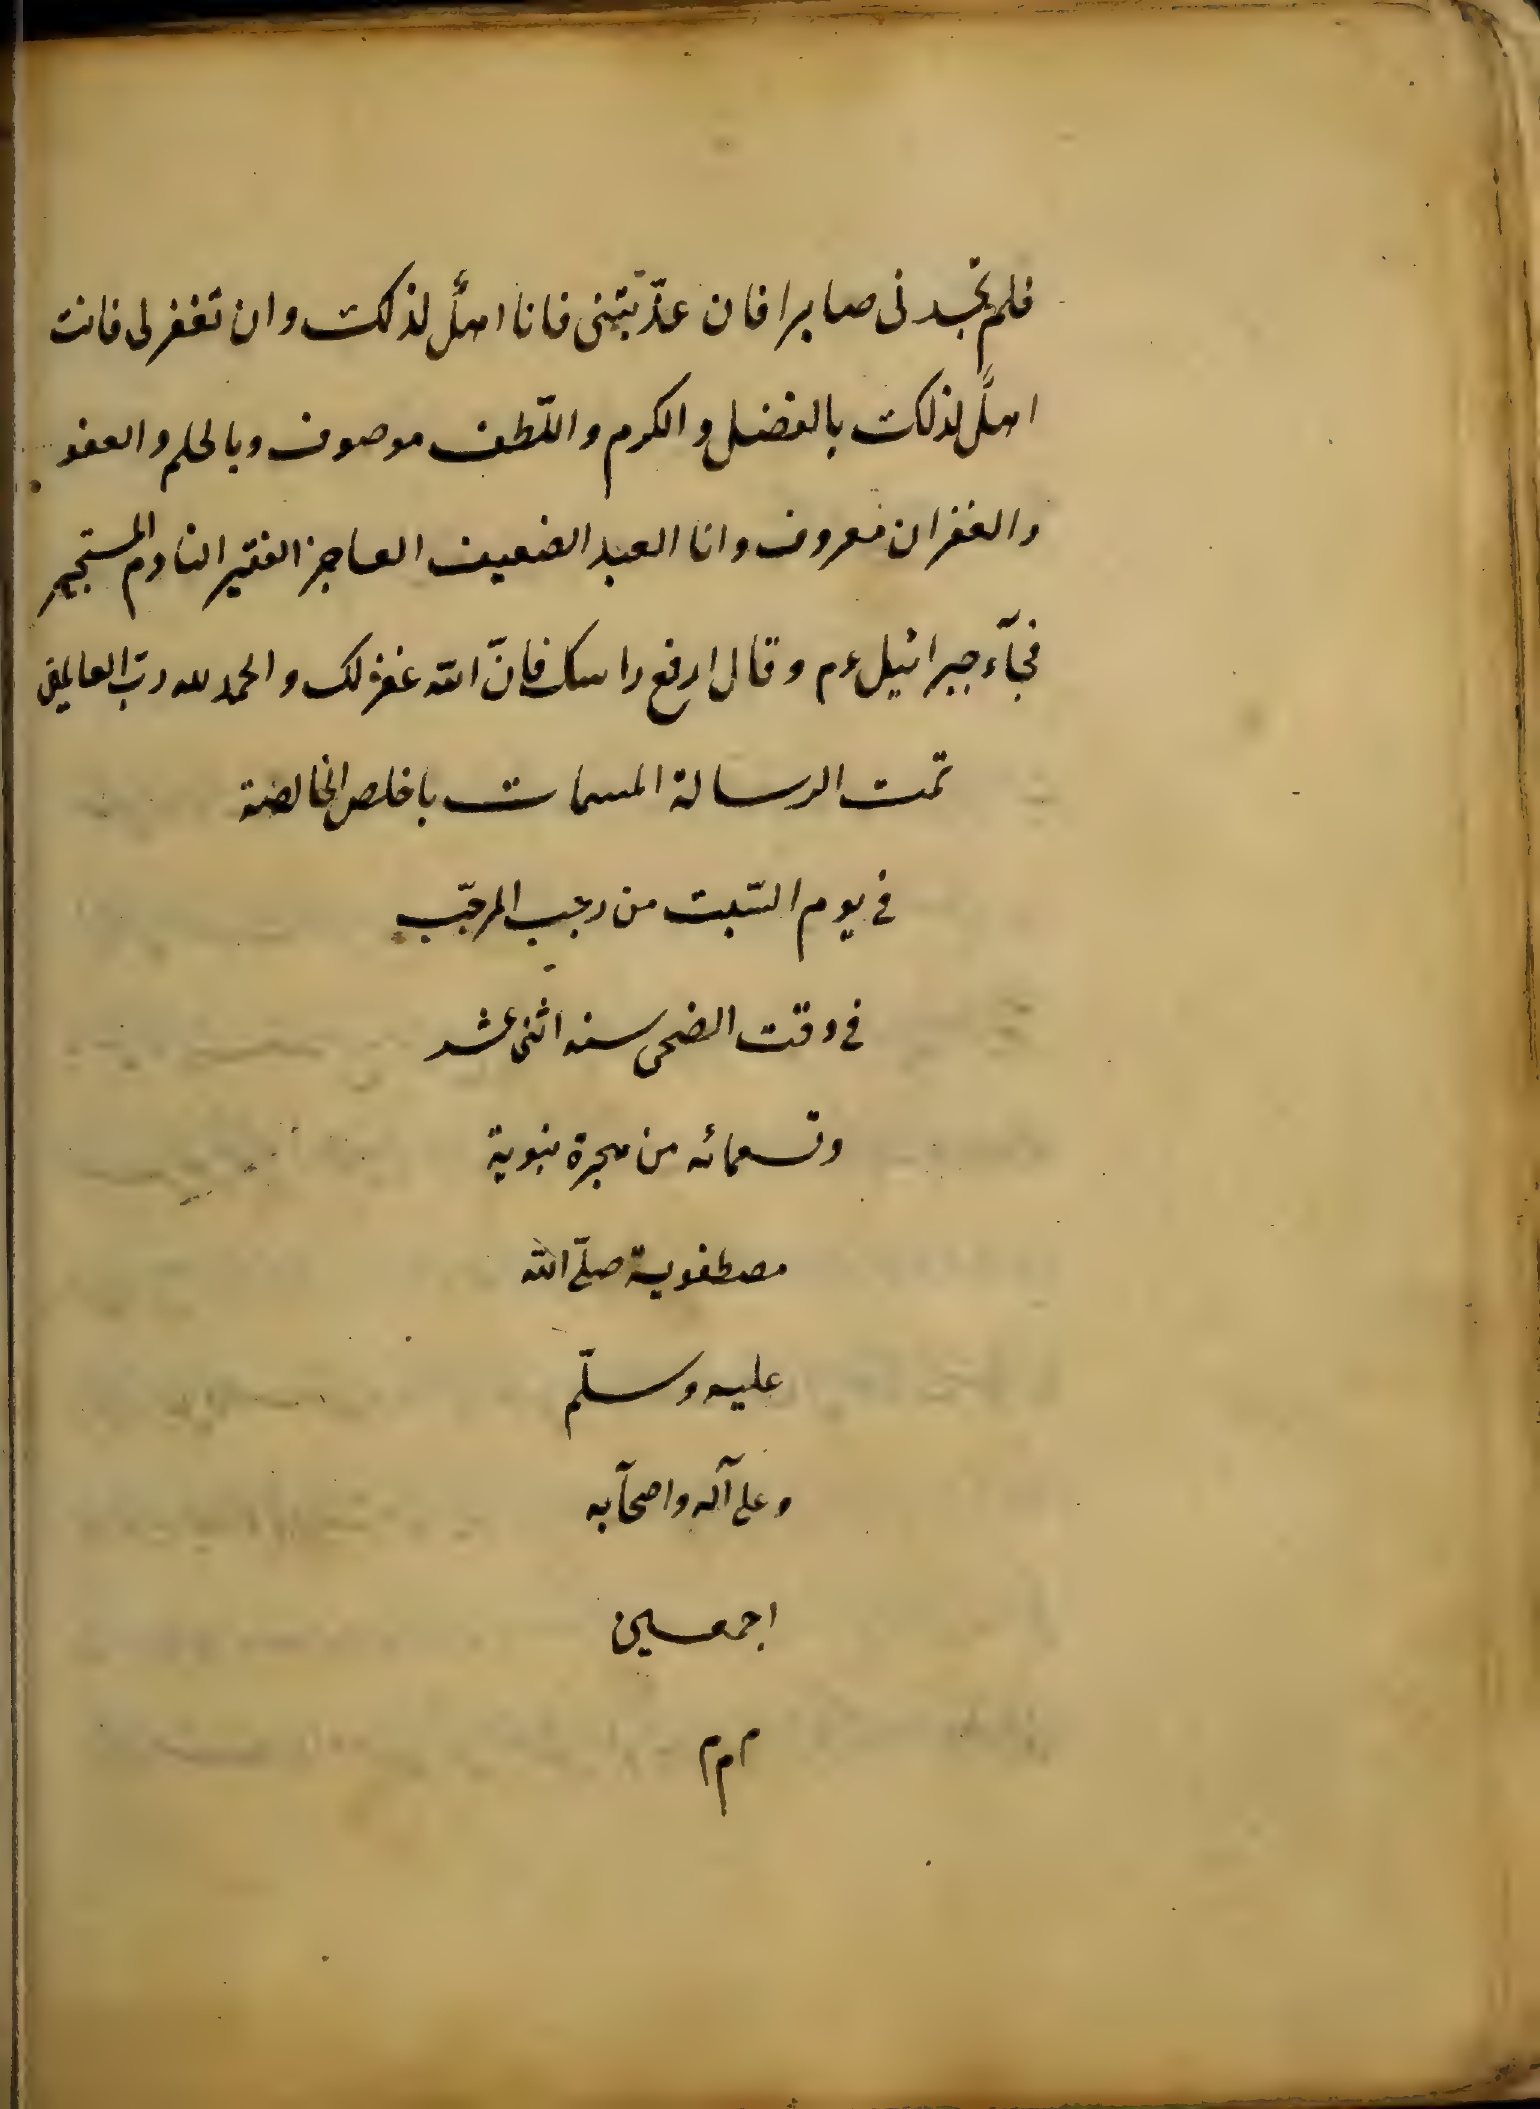 فلم تجدنى صابرا فان عذّبتنى فانا اهلٌ لذلك وان تغفر لى فانت
اهلٌ لذلك بالفضل و الكرم و اللّطف موصوف وبالحلم و العفو
و الغفران معروف وانا العبد الضعيف العاجز الفقير النادم المستجير
فجآء جبرائيل ءم وقال ارفع راسك فانّ الله غفر لك و الحمد لله ربّ العالمين
تمت الرسالة المسمات باخلص الخالصة
فى يوم السّبت من رجب المرجّب
فى وقت الضحى سنه اثنى عشر
وتسعمائه من هجرة نبوية
مصطفوية صلّى الله
عليه وسلّم
وعلى آله واصحآبه
اجمعين
م م م